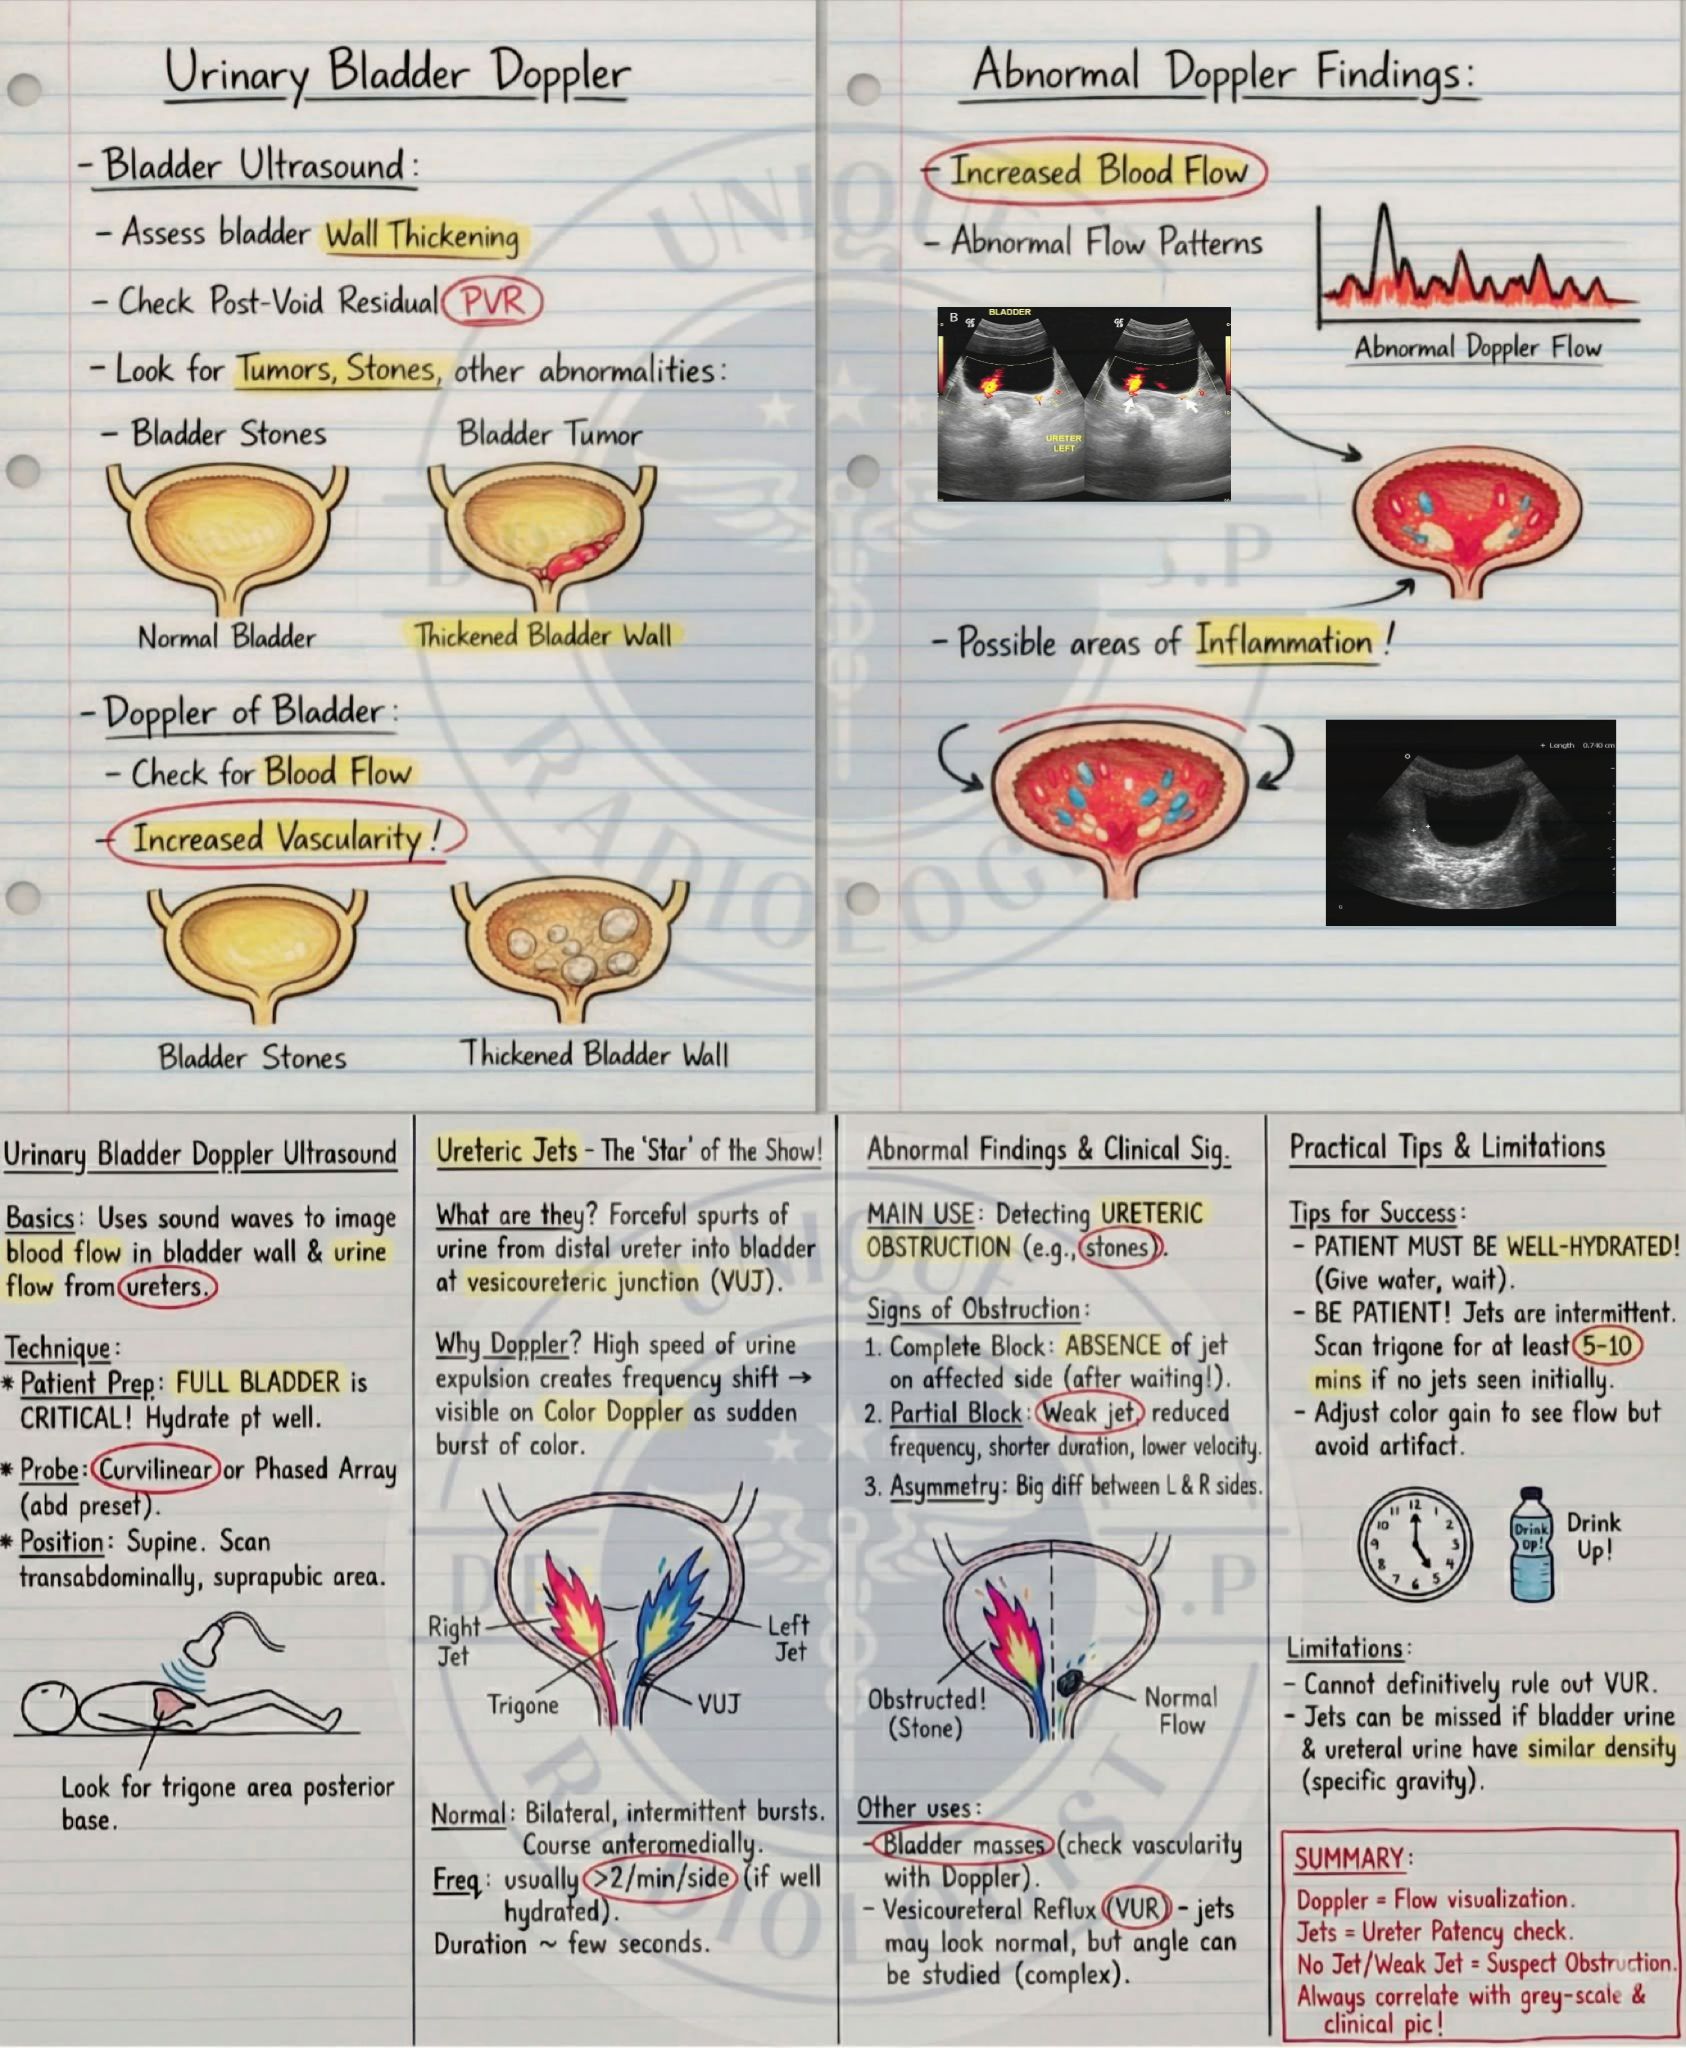 Urinary Bladder Doppler
- Bladder Ultrasound:
- Assess bladder Wall Thickening
- Check Post-Void Residual PVR
- Look for Tumors, Stones, other abnormalities:
- Bladder Stones
Bladder Tumor
Normal Bladder
Thickened Bladder Wall
- Doppler of Bladder:
- Check for Blood Flow
- Increased Vascularity!
Bladder Stones
Thickened Bladder Wall
Abnormal Doppler Findings:
- Increased Blood Flow
- Abnormal Flow Patterns
Abnormal Doppler Flow
B
BLADDER
URETER
LEFT
- Possible areas of Inflammation!
+ Length 0.740 cm
UNIQUE
RADIOLOGIST
Urinary Bladder Doppler Ultrasound
Basics: Uses sound waves to image
blood flow in bladder wall & urine
flow from ureters.
Technique:
* Patient Prep: FULL BLADDER is
CRITICAL! Hydrate pt well.
* Probe: Curvilinear or Phased Array
(abd preset).
* Position: Supine. Scan
transabdominally, suprapubic area.
Look for trigone area posterior
base.
Ureteric Jets - The 'Star' of the Show!
What are they? Forceful spurts of
urine from distal ureter into bladder
at vesicoureteric junction (VUJ).
Why Doppler? High speed of urine
expulsion creates frequency shift →
visible on Color Doppler as sudden
burst of color.
Right
Jet
Left
Jet
Trigone
VUJ
Normal: Bilateral, intermittent bursts.
Course anteromedially.
Freq: usually >2/min/side (if well
hydrated).
Duration ~ few seconds.
Abnormal Findings & Clinical Sig.
MAIN USE: Detecting URETERIC
OBSTRUCTION (e.g., stones).
Signs of Obstruction:
1. Complete Block: ABSENCE of jet
on affected side (after waiting!).
2. Partial Block: Weak jet, reduced
frequency, shorter duration, lower velocity.
3. Asymmetry: Big diff between L & R sides.
Obstructed!
(Stone)
Normal
Flow
Other uses:
- Bladder masses (check vascularity
with Doppler).
- Vesicoureteral Reflux (VUR) - jets
may look normal, but angle can
be studied (complex).
Practical Tips & Limitations
Tips for Success:
- PATIENT MUST BE WELL-HYDRATED!
(Give water, wait).
- BE PATIENT! Jets are intermittent.
Scan trigone for at least 5-10
mins if no jets seen initially.
- Adjust color gain to see flow but
avoid artifact.
12 1 2 3 4 5 6 7 8 9 10 11
Drink
Up!
Drink
Up!
Limitations:
- Cannot definitively rule out VUR.
- Jets can be missed if bladder urine
& ureteral urine have similar density
(specific gravity).
SUMMARY:
Doppler = Flow visualization.
Jets = Ureter Patency check.
No Jet/Weak Jet = Suspect Obstruction.
Always correlate with grey-scale &
clinical pic!
UNIQUE
RADIOLOGIST